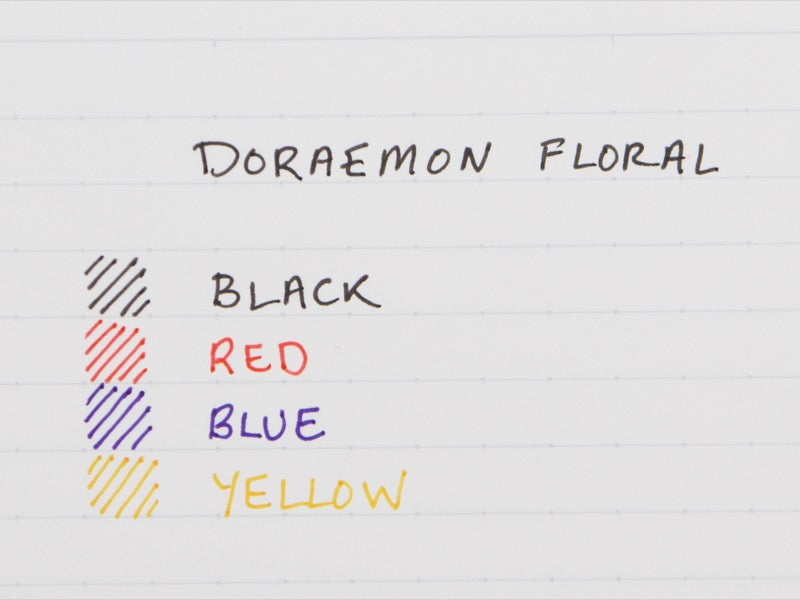 DORAEMON FLORAL
BLACK
RED
BLUE
YELLOW